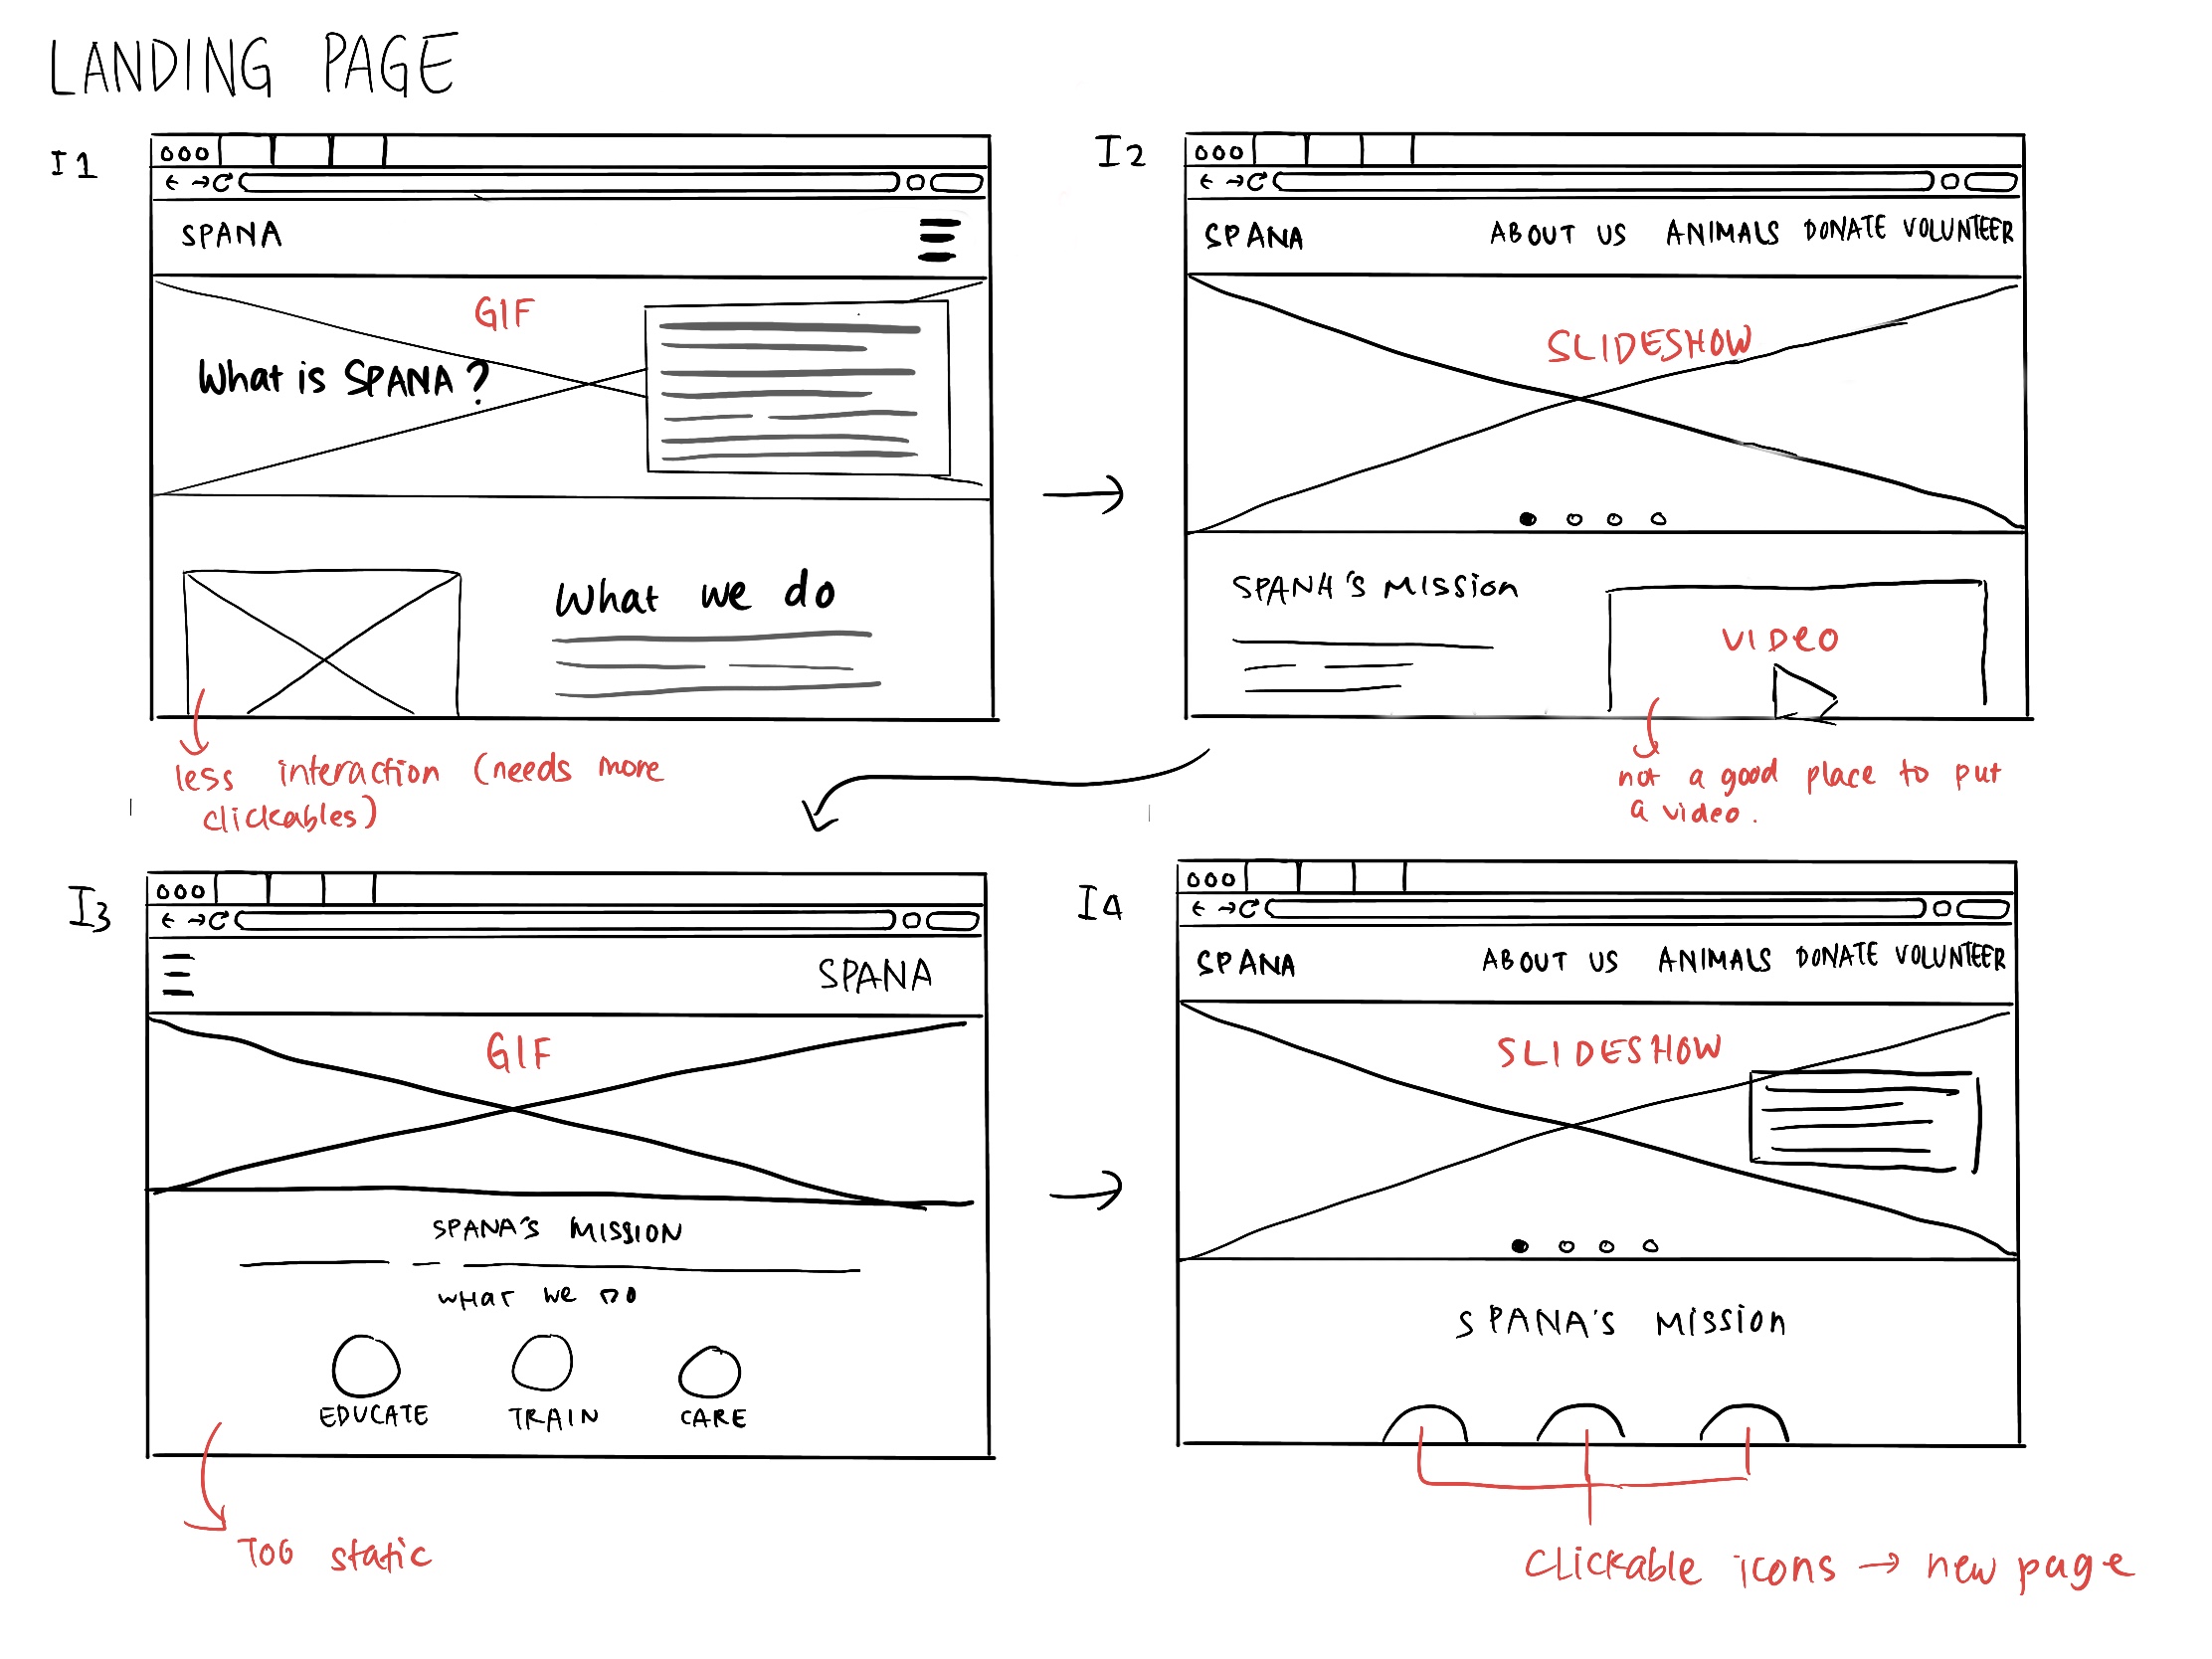 LANDING PAGE
I1
SPANA
GIF
What is SPANA?
What we do
less interaction (needs more
clickables)
I2
SPANA ABOUT US ANIMALS DONATE VOLUNTEER
SLIDESHOW
SPANA'S MISSION
VIDEO
not a good place to put
a video.
I3
SPANA
GIF
SPANA'S MISSION
WHAT WE DO
EDUCATE TRAIN CARE
TOO static
I4
SPANA ABOUT US ANIMALS DONATE VOLUNTEER
SLIDESHOW
SPANA'S MISSION
Clickable icons → new page